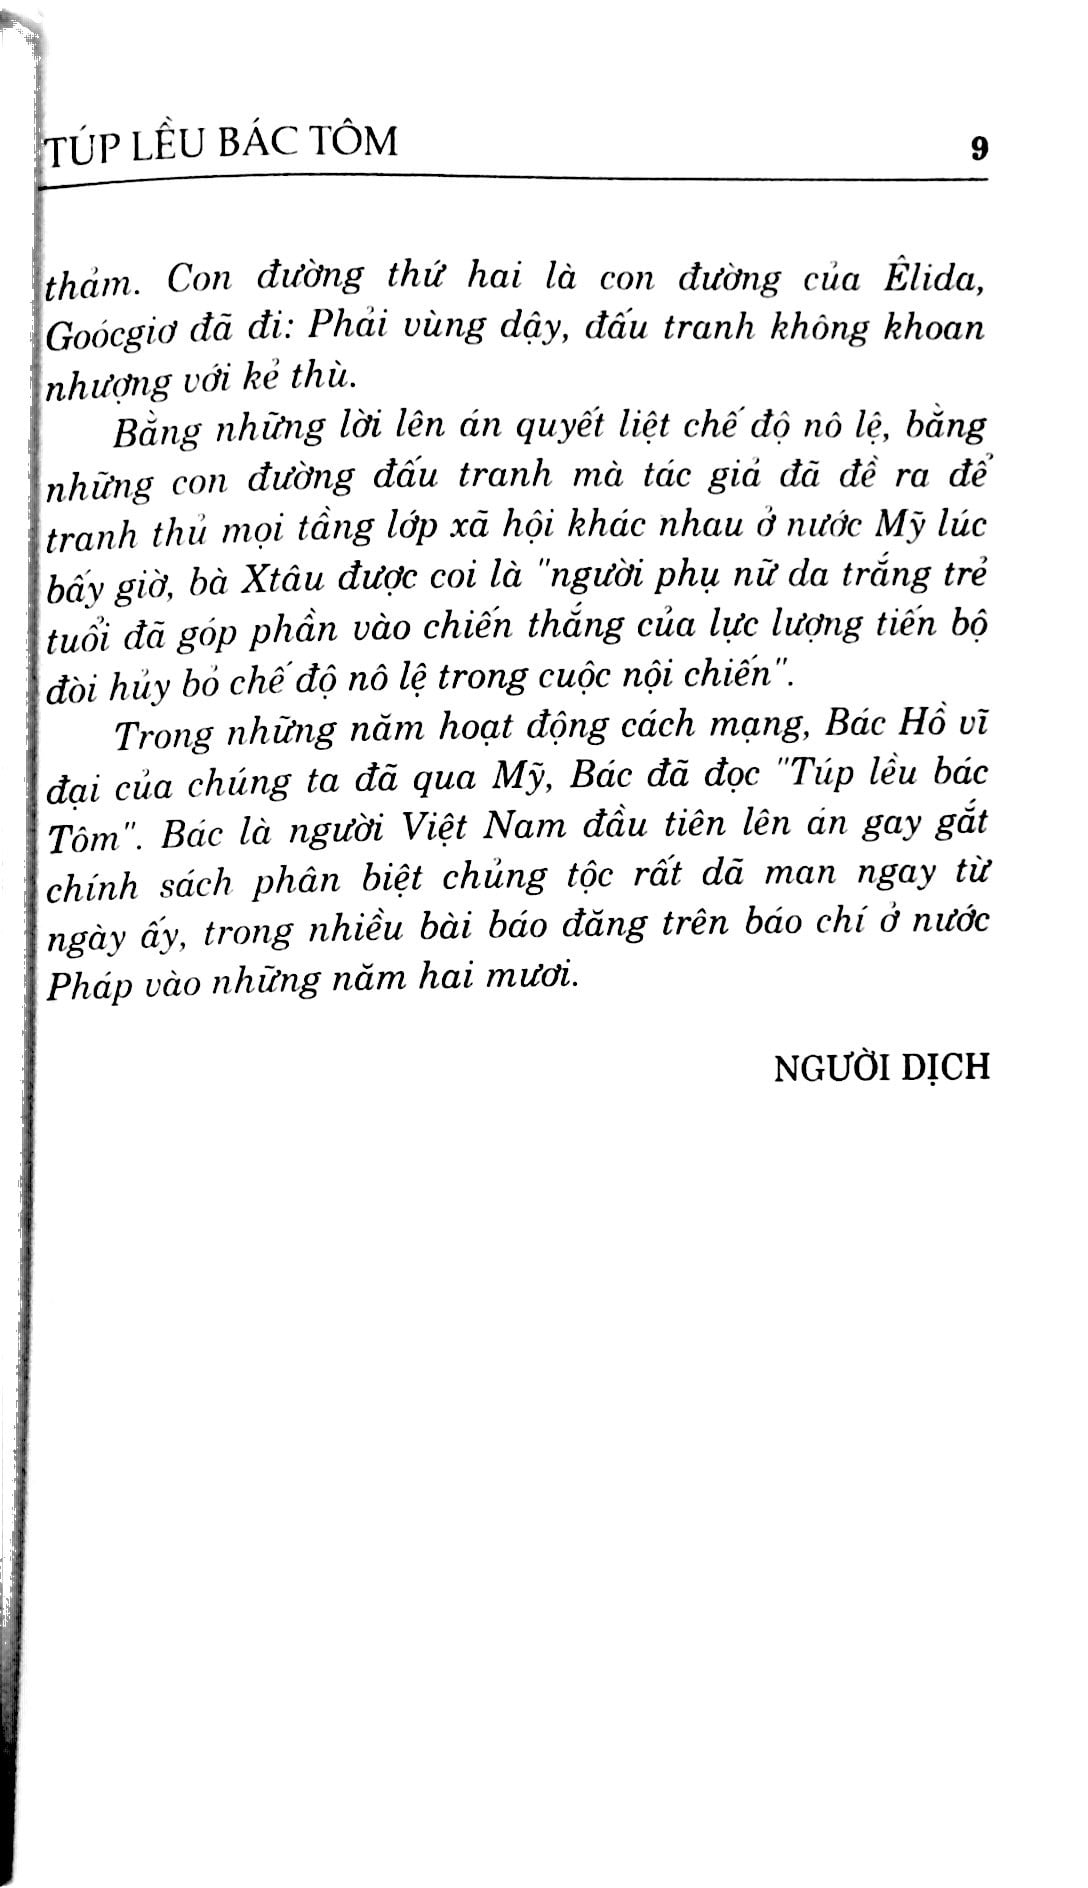 TÚP LỀU BÁC TÔM 9
thảm. Con đường thứ hai là con đường của Êlida,
Goócgiơ đã đi: Phải vùng dậy, đấu tranh không khoan
nhượng với kẻ thù.
Bằng những lời lên án quyết liệt chế độ nô lệ, bằng
những con đường đấu tranh mà tác giả đã đề ra để
tranh thủ mọi tầng lớp xã hội khác nhau ở nước Mỹ lúc
bấy giờ, bà Xtâu được coi là "người phụ nữ da trắng trẻ
tuổi đã góp phần vào chiến thắng của lực lượng tiến bộ
đòi hủy bỏ chế độ nô lệ trong cuộc nội chiến".
Trong những năm hoạt động cách mạng, Bác Hồ vĩ
đại của chúng ta đã qua Mỹ, Bác đã đọc "Túp lều bác
Tôm". Bác là người Việt Nam đầu tiên lên án gay gắt
chính sách phân biệt chủng tộc rất dã man ngay từ
ngày ấy, trong nhiều bài báo đăng trên báo chí ở nước
Pháp vào những năm hai mươi.
NGƯỜI DỊCH